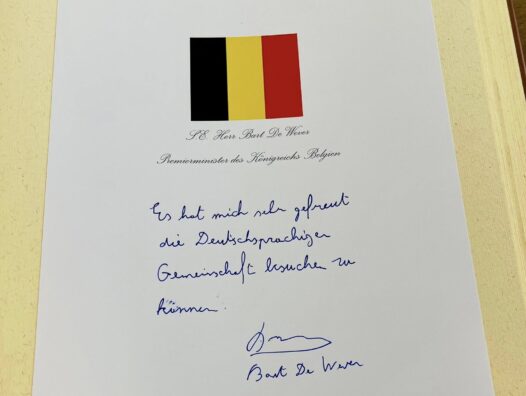 S.E. Herr Bart De Wever
Premierminister des Königreichs Belgien
Es hat mich sehr gefreut
die Deutschsprachigen
Gemeinschaft besuchen zu
können.
Bart De Wever